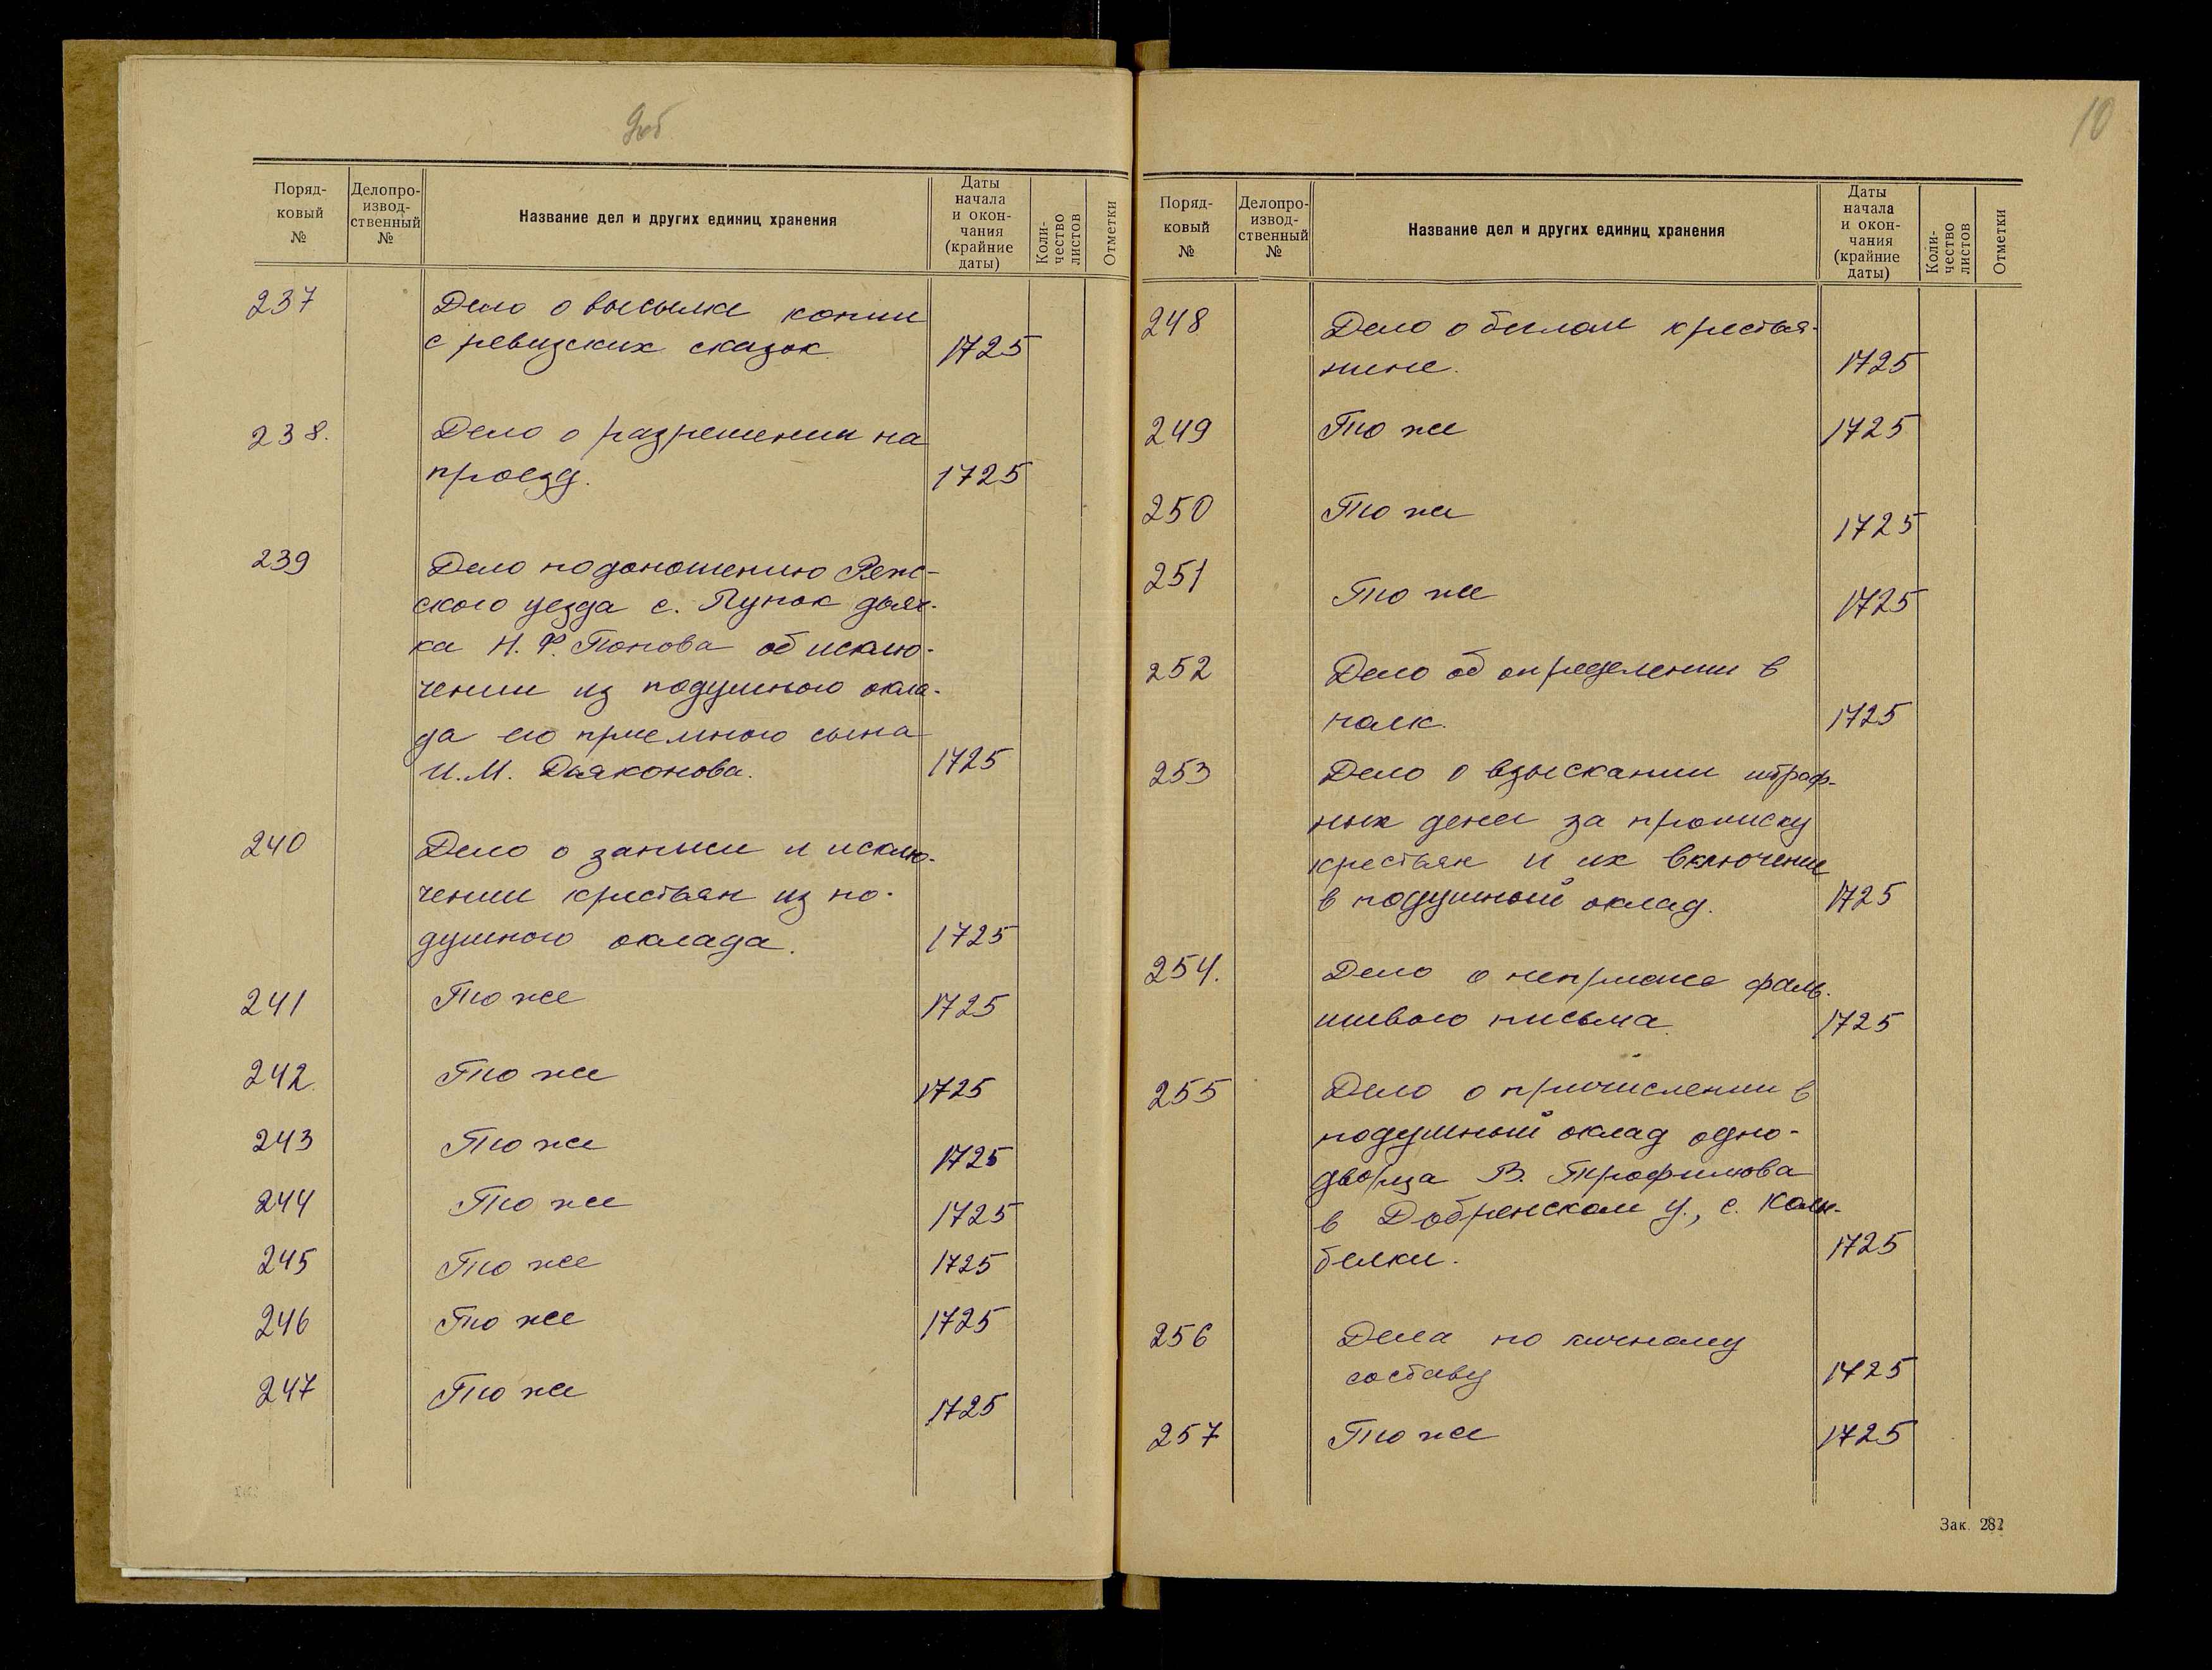 9об
Поряд-
ковый
№
Делопро-
извод-
ственный
№
Название дел и других единиц хранения
Даты
начала
и окон-
чания
(крайние
даты)
Коли-
чество
листов
Отметки
237
Дело о высылке копии
с ревизских сказок 1725
238. Дело о разрешении на
проезд. 1725
239 Дело по доношению Ряжс-
ского уезда с. Пупок дьяч-
ка Н. Ф. Попова об исклю-
чении из подушного окла-
да его приемного сына
И. М. Дьяконова. 1725
240 Дело о записи и исклю-
чении крестьян из по-
душного оклада. 1725
241 То же 1725
242. То же 1725
243 То же 1725
244 То же 1725
245 То же 1725
246 То же 1725
247 То же 1725
10
Поряд-
ковый
№
Делопро-
извод-
ственный
№
Название дел и других единиц хранения
Даты
начала
и окон-
чания
(крайние
даты)
Коли-
чество
листов
Отметки
248 Дело о беглом крестья-
нине. 1725
249 То же 1725
250 То же 1725
251 То же 1725
252 Дело об определении в
полк. 1725
253 Дело о взыскании штраф-
ных денег за прописку
крестьян и их включение
в подушный оклад. 1725
254. Дело о фаль-
шивого письма. 1725
255 Дело о причислении в
подушный оклад одно-
дворца В. Трофимова
в Добренском у., с. Колы-
белки. 1725
256 Дела по личному
составу 1725
257 То же 1725
Зак. 282